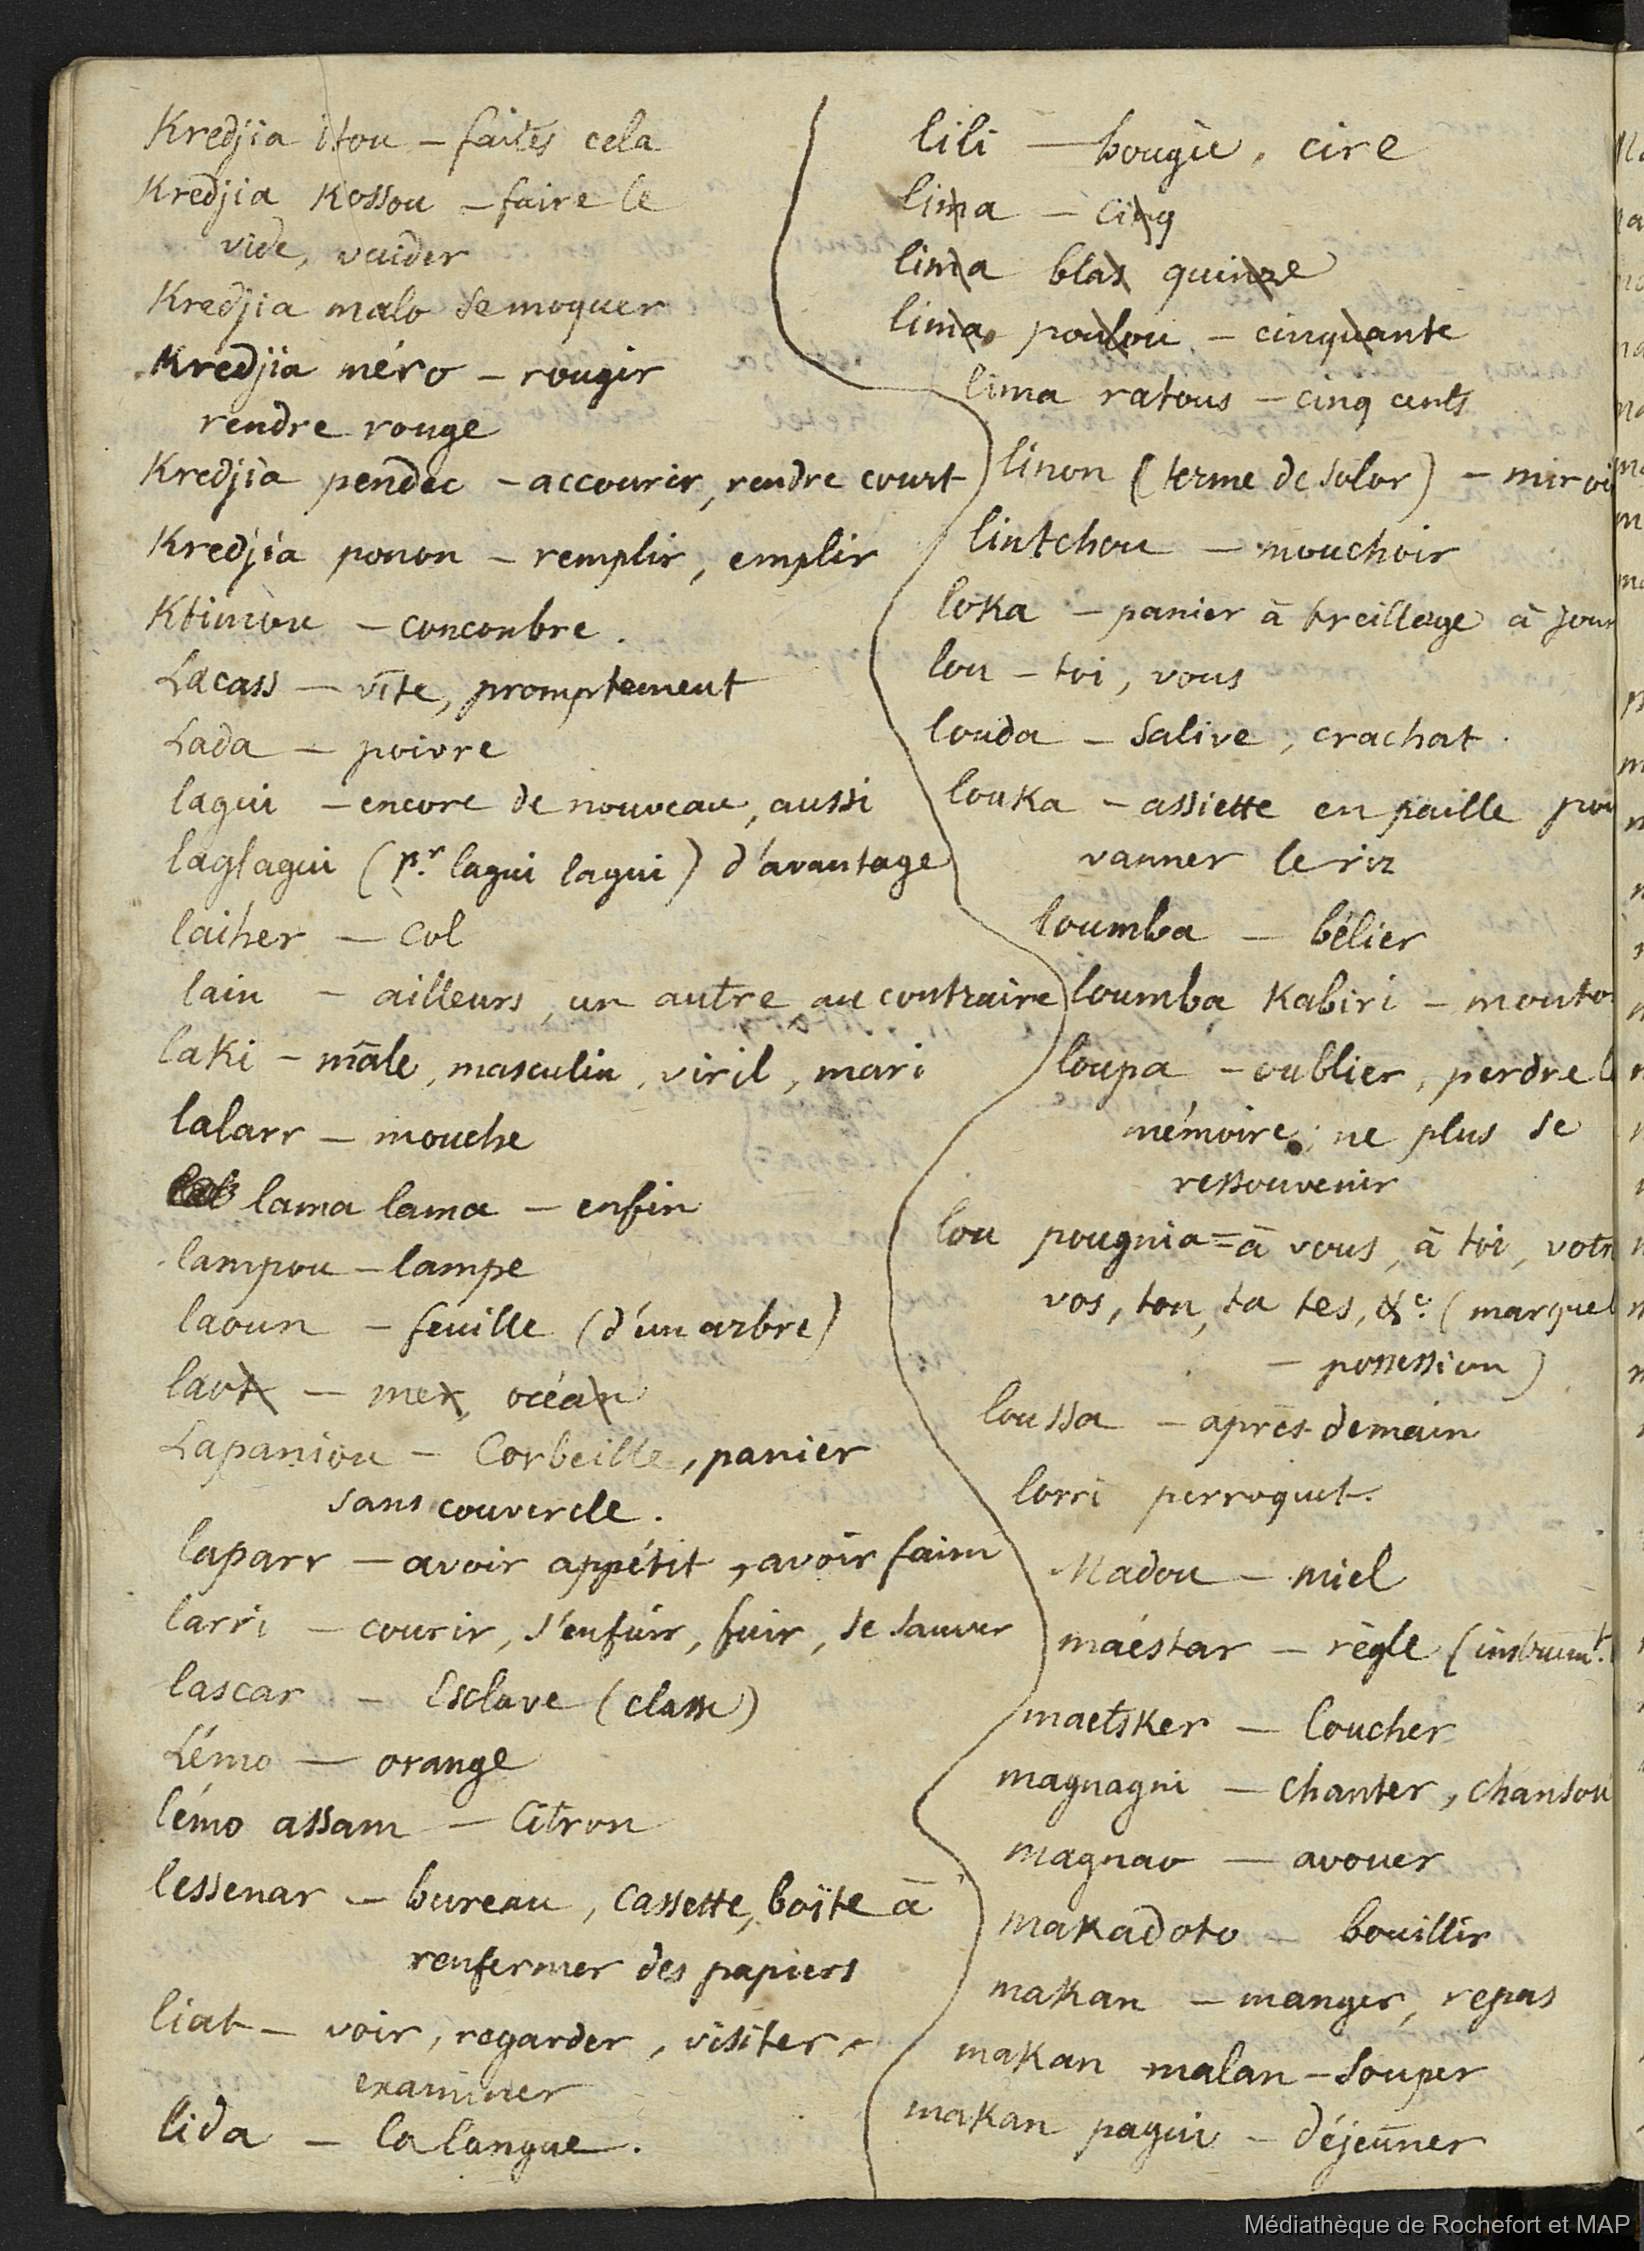 Kredjia itou – faites cela
Kredjia Kossou – faire le
vide, vuider
Kredjia malo se moquer
Kredjia méro – rougir
rendre rouge
Kredjia pendec – accourcir, rendre court
Kredjia ponon – remplir, emplir
Ktimou – conconbre.
Lacass – vîte, promptement
Lada – poivre
lagui – encore de nouveau, aussi
laglagui (pr. lagui lagui) d'avantage
laiher – col
lain – ailleurs, un autre, au contraire
laki – mâle, masculin, viril, mari
lalarr – mouche
lama lama – enfin
lampou – lampe
laoun – feuille (d'un arbre)
laot – mer, océan
Lapaniou – Corbeille, panier
sans couvercle.
laparr – avoir appétit, avoir faim
larri – courir, s'enfuir, fuir, se sauver
lascar – Esclave (classe)
Lémo – orange
lémo assam – Citron
lessenar – bureau, cassette, boîte à
renfermer des papiers
liat – voir, regarder, visiter,
examiner
lida – la langue.
lili – bougie, cire
lima – cinq
lima blas quinze
lima poulou – cinquante
lima ratous – cinq cents
linon (terme de solor) – miroi
lintchou – mouchoir
loka – panier à treillage à jour
lou – toi, vous
louda – salive, crachat.
louka – assiette en paille pou
vanner le riz
loumba – bélier
loumba Kabiri – mouto
loupa – oublier, perdre l
mémoire; ne plus se
ressouvenir
lou pougnia = à vous, à toi, votr
vos, ton, ta tes, &c. (marque
– possession)
loussa – après-demain
lorri perroquet.
Madou – miel
maéstar – règle (instrumt.
maetsker – loucher
magnagni – chanter, chanson
magnao – avouer
makadoto – bouillir
makan – manger, repas
makan malan – souper
makan pagui – déjeûner
Médiathèque de Rochefort et MAP